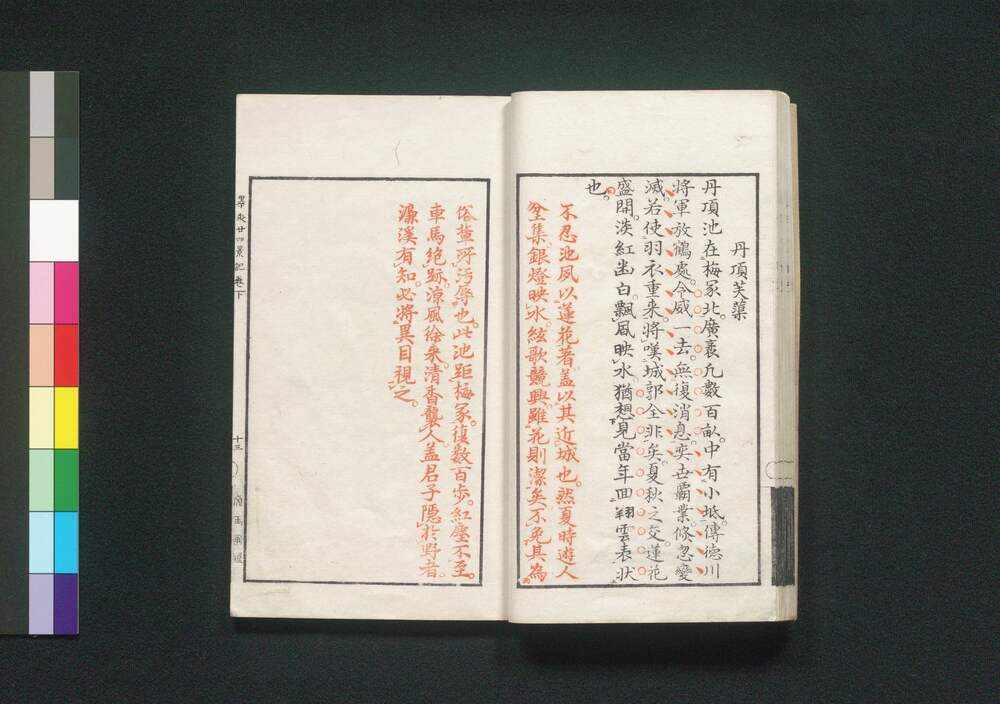 丹頂芙蕖
丹頂池在梅冢北。廣袤凡數百畝。中有小坻。傳德川
將軍放鶴處。今威一去。無復消息。奕世霸業。倏忽變
滅。若使羽衣重来。將嘆城郭全非矣。夏秋之交。蓮花
盛開。淡紅幽白。飄風映水。猶想見當年回翔雲表狀
也。
不忍池夙以蓮花著。盖以其近城也。然夏時遊人
坌集。銀燈映水。絃歌競興。雖花則潔矣。不免其為
俗輩所汚辱也。此池距梅冢。復數百步。紅塵不至。
車馬絶跡。涼風徐来。清香襲人。盖君子隠於野者。
濂溪有知。必將異目視之。
廿四景記卷下
十三